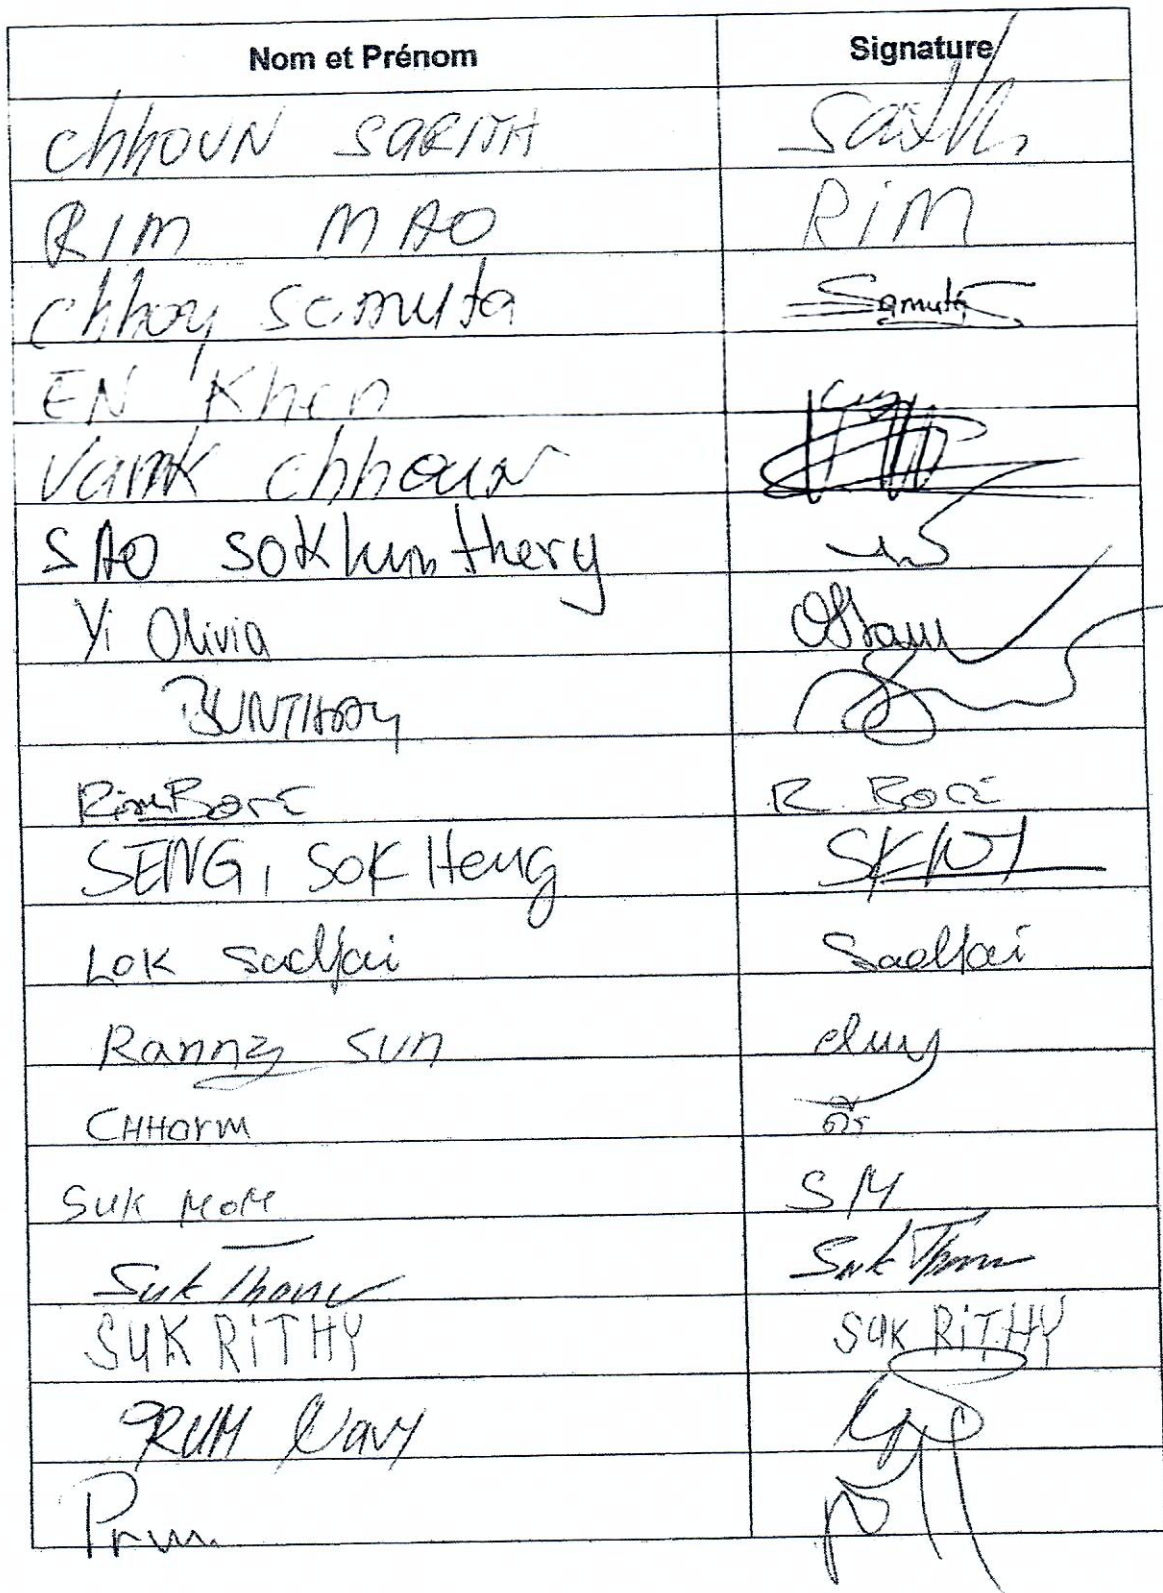 Nom et Prénom Signature
Chhoun SARITH Sarith
RIM MAO RiM
Chhoy Samuta Samuta
EN Khen
Vamk Chhoun
SAO SOKhunthery
Yi Olivia
BUNTHAY
Rim Bore R. Bore
SENG, SOK Heng
LOK Sadyai Sadyai
Ranny SUN
CHHorM
SUK MOM S M
Suk Thonn Suk Thonn
SUK RiTHY SUK RiTHY
PRUM Navy
Prum